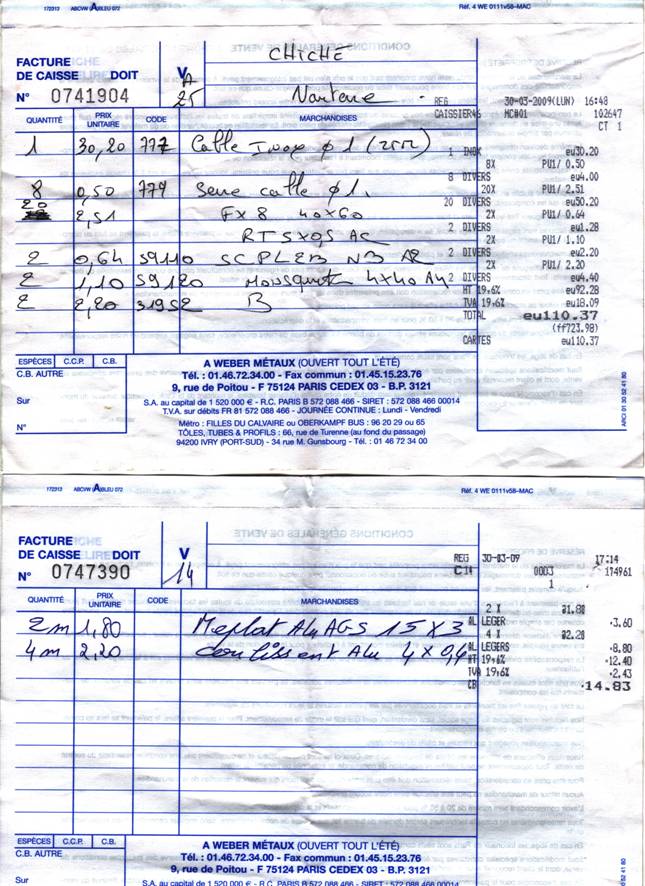 172313 ABCVW A/BLEU 072
Réf. 4 WE 0111v58-MAC
FACTURE
DE CAISSE DOIT
N° 0741904
V
A
25
CHICHE
Nanterre
REG 30-03-2009(LUN) 16:48
CAISSIER46 MC#01 102647
CT 1
QUANTITÉ PRIX UNITAIRE CODE MARCHANDISES
1 30,20 777 Cable Inox φ1 (25m)
8 0,50 779 Serre cable φ1.
20 2,51 FX8 40x60
RT 5x0,5 AC
2 0,64 59110 SC PLEB N3 A2
2 1,10 59120 Mousquet 4x40 A4
2 2,20 31952 B
1 INOX eu30.20
8X PU1/ 0.50
8 DIVERS eu4.00
20X PU1/ 2.51
20 DIVERS eu50.20
2X PU1/ 0.64
2 DIVERS eu1.28
2X PU1/ 1.10
2 DIVERS eu2.20
2X PU1/ 2.20
2 DIVERS eu4.40
HT 19.6% eu92.28
TVA 19.6% eu18.09
TOTAL eu110.37
(ff723.98)
CARTES eu110.37
ESPÈCES C.C.P. C.B.
C.B. AUTRE
Sur
N°
A WEBER MÉTAUX (OUVERT TOUT L'ÉTÉ)
Tél. : 01.46.72.34.00 - Fax commun : 01.45.15.23.76
9, rue de Poitou - F 75124 PARIS CEDEX 03 - B.P. 3121
S.A. au capital de 1 520 000 € - R.C. PARIS B 572 088 466 - SIRET : 572 088 466 00014
T.V.A. sur débits FR 81 572 088 466 - JOURNÉE CONTINUE : Lundi - Vendredi
Métro : FILLES DU CALVAIRE ou OBERKAMPF BUS : 96 20 29 ou 65
TÔLES, TUBES & PROFILS : 66, rue de Turenne (au fond du passage)
94200 IVRY (PORT-SUD) - 34 rue M. Gunsbourg - Tél. : 01 46 72 34 00
ARCI 01 30 52 41 80
172313 ABCVW A/BLEU 072
Réf. 4 WE 0111v58-MAC
FACTURE
DE CAISSE DOIT
N° 0747390
V
14
REG 30-03-09 17:14
C1 0003 174961
1
QUANTITÉ PRIX UNITAIRE CODE MARCHANDISES
2m 1,80 Meplat Alu AGS 15x3
4m 2,20 coulissent Alu 4x0,4
2 X a1.80
AL LEGER ·3.60
4 X a2.20
AL LEGERS ·8.80
HT 19.6% ·12.40
TVA 19.6% ·2.43
CB ·14.83
ESPÈCES C.C.P. C.B.
C.B. AUTRE
Sur
A WEBER MÉTAUX (OUVERT TOUT L'ÉTÉ)
Tél. : 01.46.72.34.00 - Fax commun : 01.45.15.23.76
9, rue de Poitou - F 75124 PARIS CEDEX 03 - B.P. 3121
S.A. au capital de 1 520 000 € - R.C. PARIS B 572 088 466 - SIRET : 572 088 466 00014